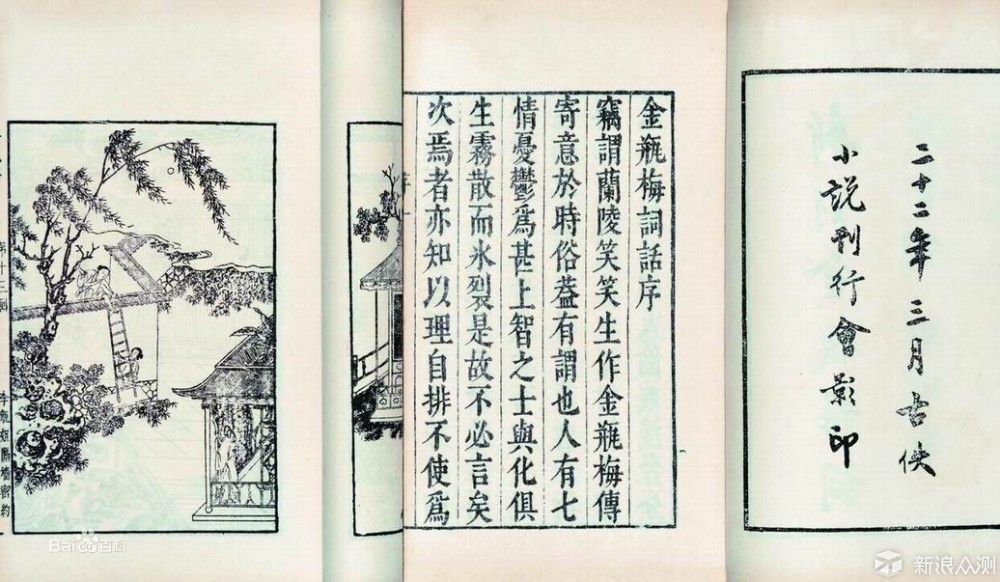 二十二年三月古佚
小說刊行會影印
金瓶梅詞話序
竊謂蘭陵笑笑生作金瓶梅傳
寄意於時俗葢有謂也人有七
情憂鬱爲甚上智之士與化俱
生霧散而氷裂是故不必言矣
次焉者亦知以理自排不使爲
第十三回
李瓶姐隔墻密約
Bai 百科
新浪众测